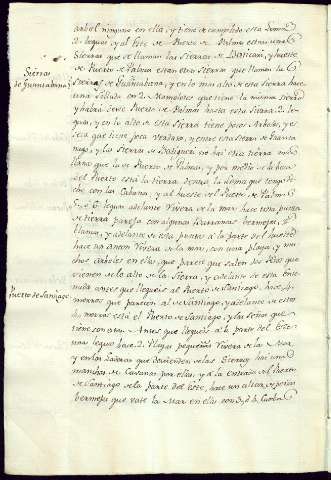 arbol ninguno en ella y tiene de cumplido esta Loma
2. leguas y al Este de Puerto de Palma estan unas
Sierras que se llaman las Sierras de y hueste
Sierras
de Guantabana
de Puerto de Palma estan otras Sierras que llaman las
sierras de Guantabana, y en lo mas alto de esta Sierra hace
una sillada en 2. Mamoletes que tiene la misma sierra
y habrá desde Puerto de Palma hasta esta sierra 2. le
guas, y en lo alto de esta Sierra tiene pocos Arboles, y es
seca que tiene poca verdura, y entre esta Sierra de Guanta
nabo, y la Sierra de no hai otra tierra mas
llana que la de Puerto de Palmas, y por medio de la boca
del Puerto está la tierra la loma que tengo di
cho con las Cabana, y al hueste del Puerto de Palma
6. leguas adelante Vivera de la mar hace una punta
de tierra pareja con algunas Barrancas bermejas, y
llanas, y adelante de esta punta a la parte del hueste
hace un ancon Vivera de la mar, con una playa, y mu
chos Arboles en ella, que parece que salen dos Rios que
vienen de lo alto de la Sierra, y adelante de esta Ense
nada antes que llegueis al Puerto de Santiago, hace 4.
Puerto de Santiago
morros que parecen al de Santiago, y adelante de estos
dos morros está el Puerto de Santiago, y las señas que
tiene son estas Antes que llegueis a la parte del Este
una legua hace 2. Playas pequeñas Vivera de la Mar,
y en las laderas que decienden de las Sierras hai unas
manchas de Cavanas por ellas, y a la entrada del Puerto
de Santiago de la parte del Este, hace un altar de peñas
bermejas que vate la Mar en ellas con